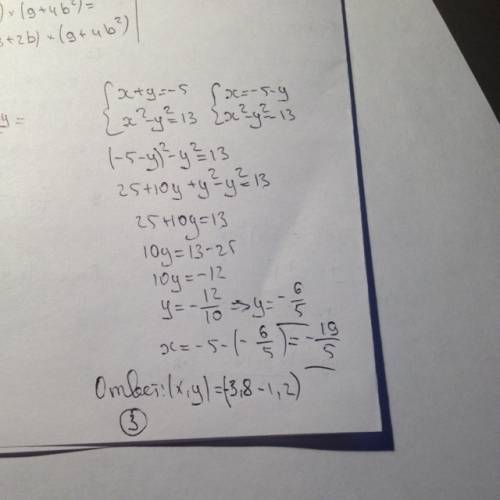 ) × (9+4b²)=
3+2b) × (9+4b²)
y=
{x+y=-5 {x=-5-y
{x²-y²=13 {x²-y²=13
(-5-y)²-y²=13
25+10y+y²-y²=13
25+10y=13
10y=13-25
10y=-12
y=-12/10 => y=-6/5
x=-5-(-6/5)=-19/5
Ответ: (x,y)=(-3,8 -1,2)
3